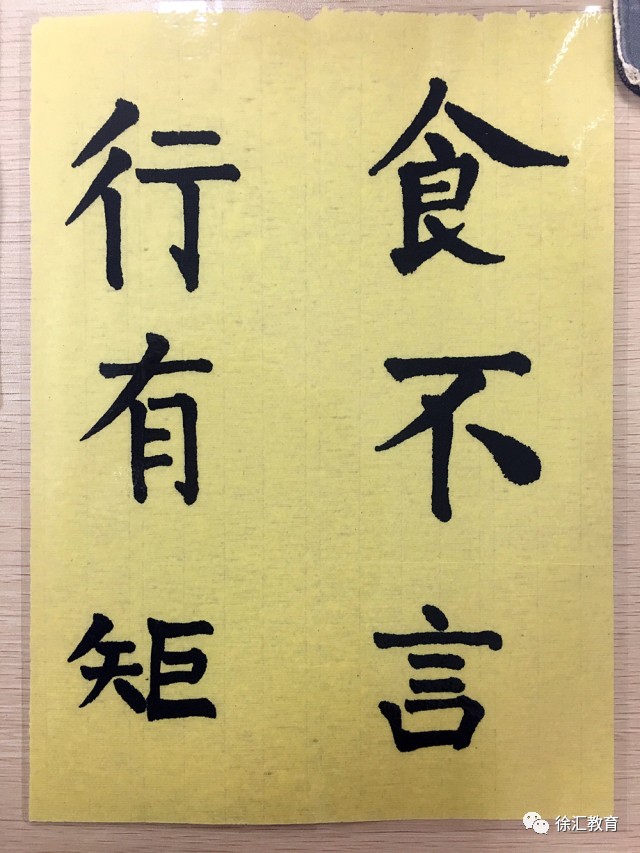 食不言
行有矩
徐汇教育